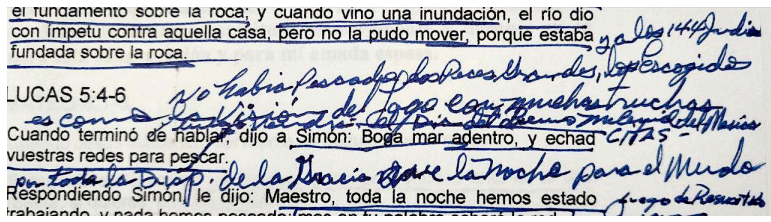 el fundamento sobre la roca; y cuando vino una inundación, el río dio
con ímpetu contra aquella casa, pero no la pudo mover, porque estaba
y a los 144
fundada sobre la roca.
No había Pescado, los Peces Grandes, los Escogidos
LUCAS 5:4-6
es como la Visión del lago con muchas truchas
del Mesías
Cuando terminó de hablar, dijo a Simón: Boga mar adentro, y echad
CITAS-
vuestras redes para pescar.
por toda la Disp. de la Gracia que la Noche para el Mundo
Respondiendo Simón, le dijo: Maestro, toda la noche hemos estado
luego de
trabajando, y nada hemos pescado; mas en tu palabra echaré la red